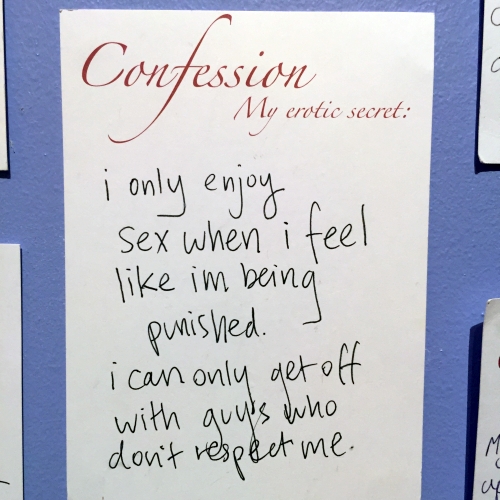 Confession
My erotic secret:
i only enjoy
sex when i feel
like im being
punished.
i can only get off
with guys who
don't respect me.